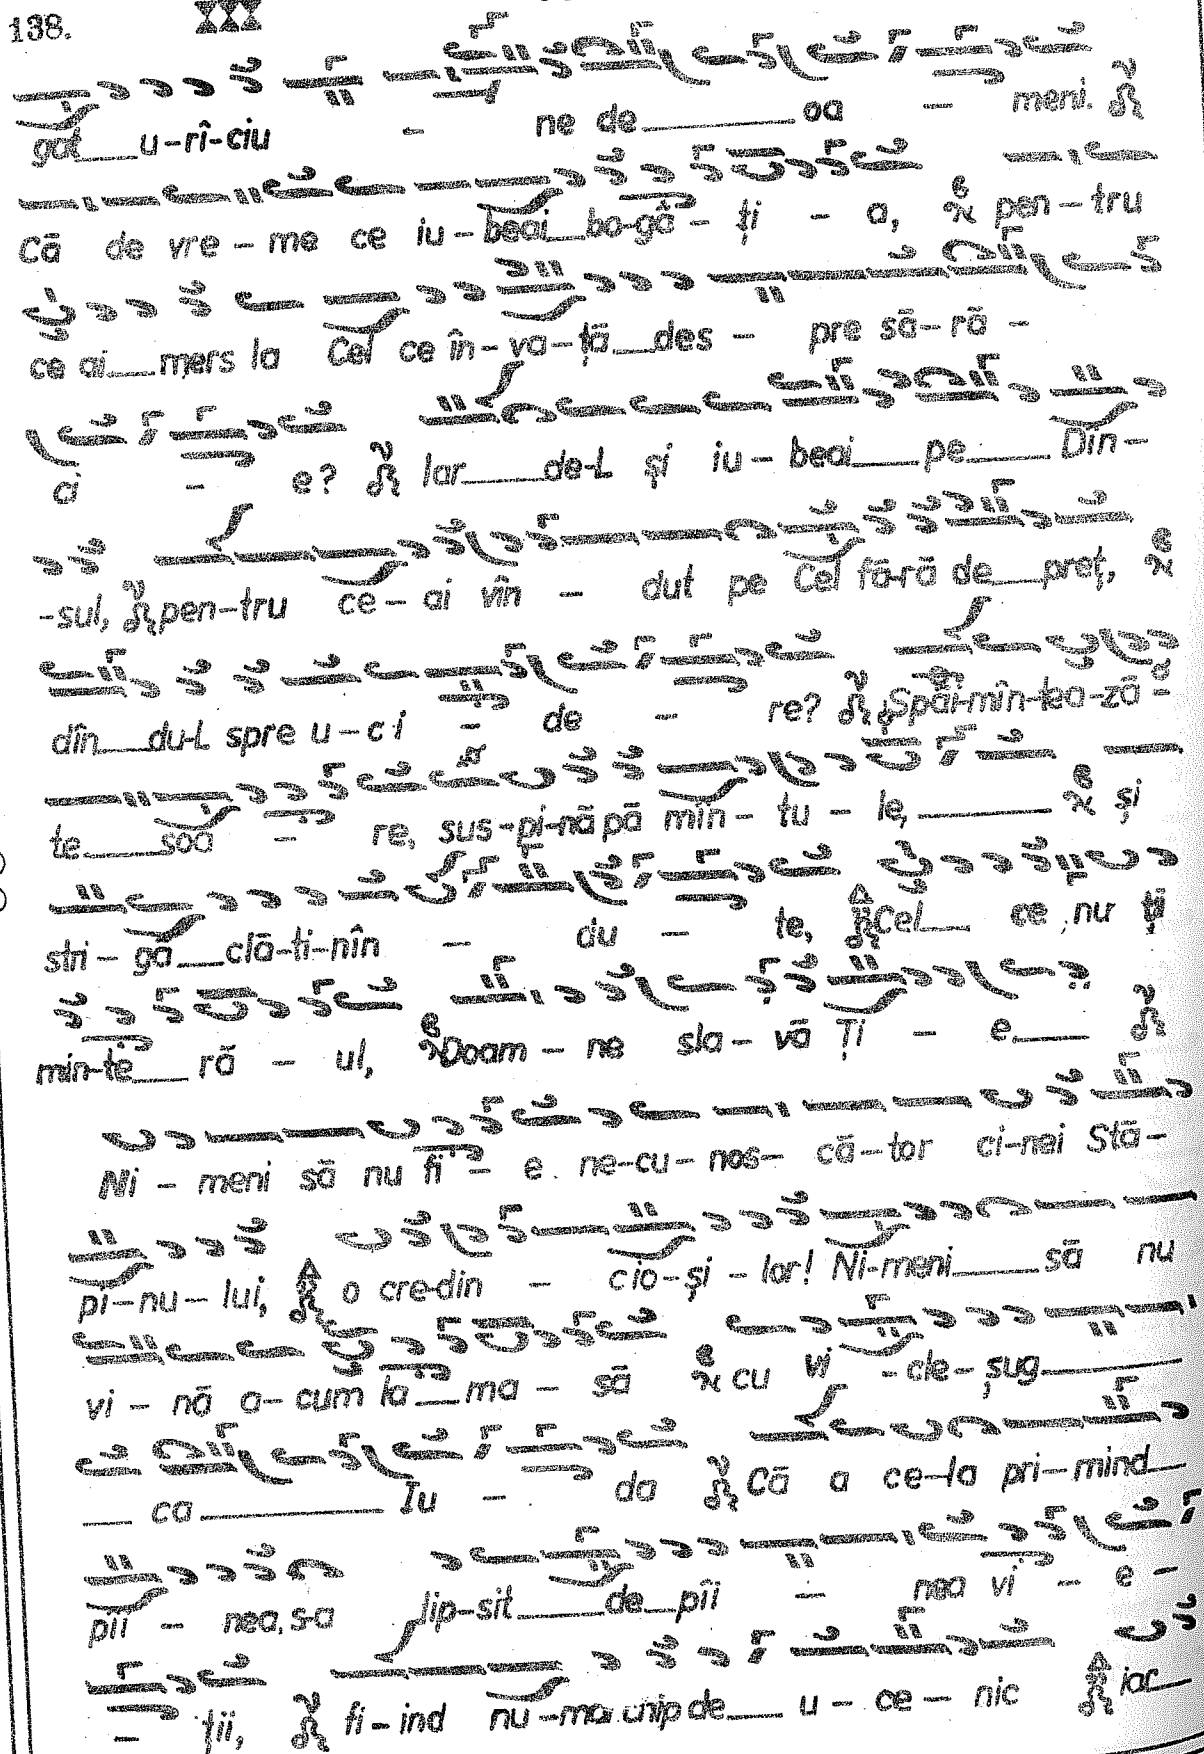 138.
gát___u-rî-ciu - ne de________oa - meni.
Că de vre-me ce iu-beai__bo-gă-ți - a, pen-tru
ce ai__mers la Cel ce în-va-ță__des - pre să-ră -
ci - e? Iar____de-L și iu-beai___pe____Din-
-sul, pen-tru ce-ai vîn - dut pe Cel fă-ră de__preț,
dîn__du-L spre u-ci - de - re? Spăi-mîn-tea-ză-
te___soa - re, sus-pi-nă pă mîn-tu-le,_______ și
stri-gă__clă-ti-nîn - du - te, Cel__ ce nu ții
min-te__ ră - ul, Doam-ne sla-vă Ți - e.___
Ni-meni să nu fi - e ne-cu-nos-că-tor ci-nei Stă-
pî-nu-lui, o cre-din - cio-și-lor! Ni-meni____să nu
vi-nă a-cum la__ma-să cu vi - cle-șug______
__ ca________ Iu - da Că a ce-la pri-mind__
pîi - nea, s-a lip-sit___de__pîi - nea vi - e -
- ții, fi-ind nu-mai chip de__ u-ce-nic iar__